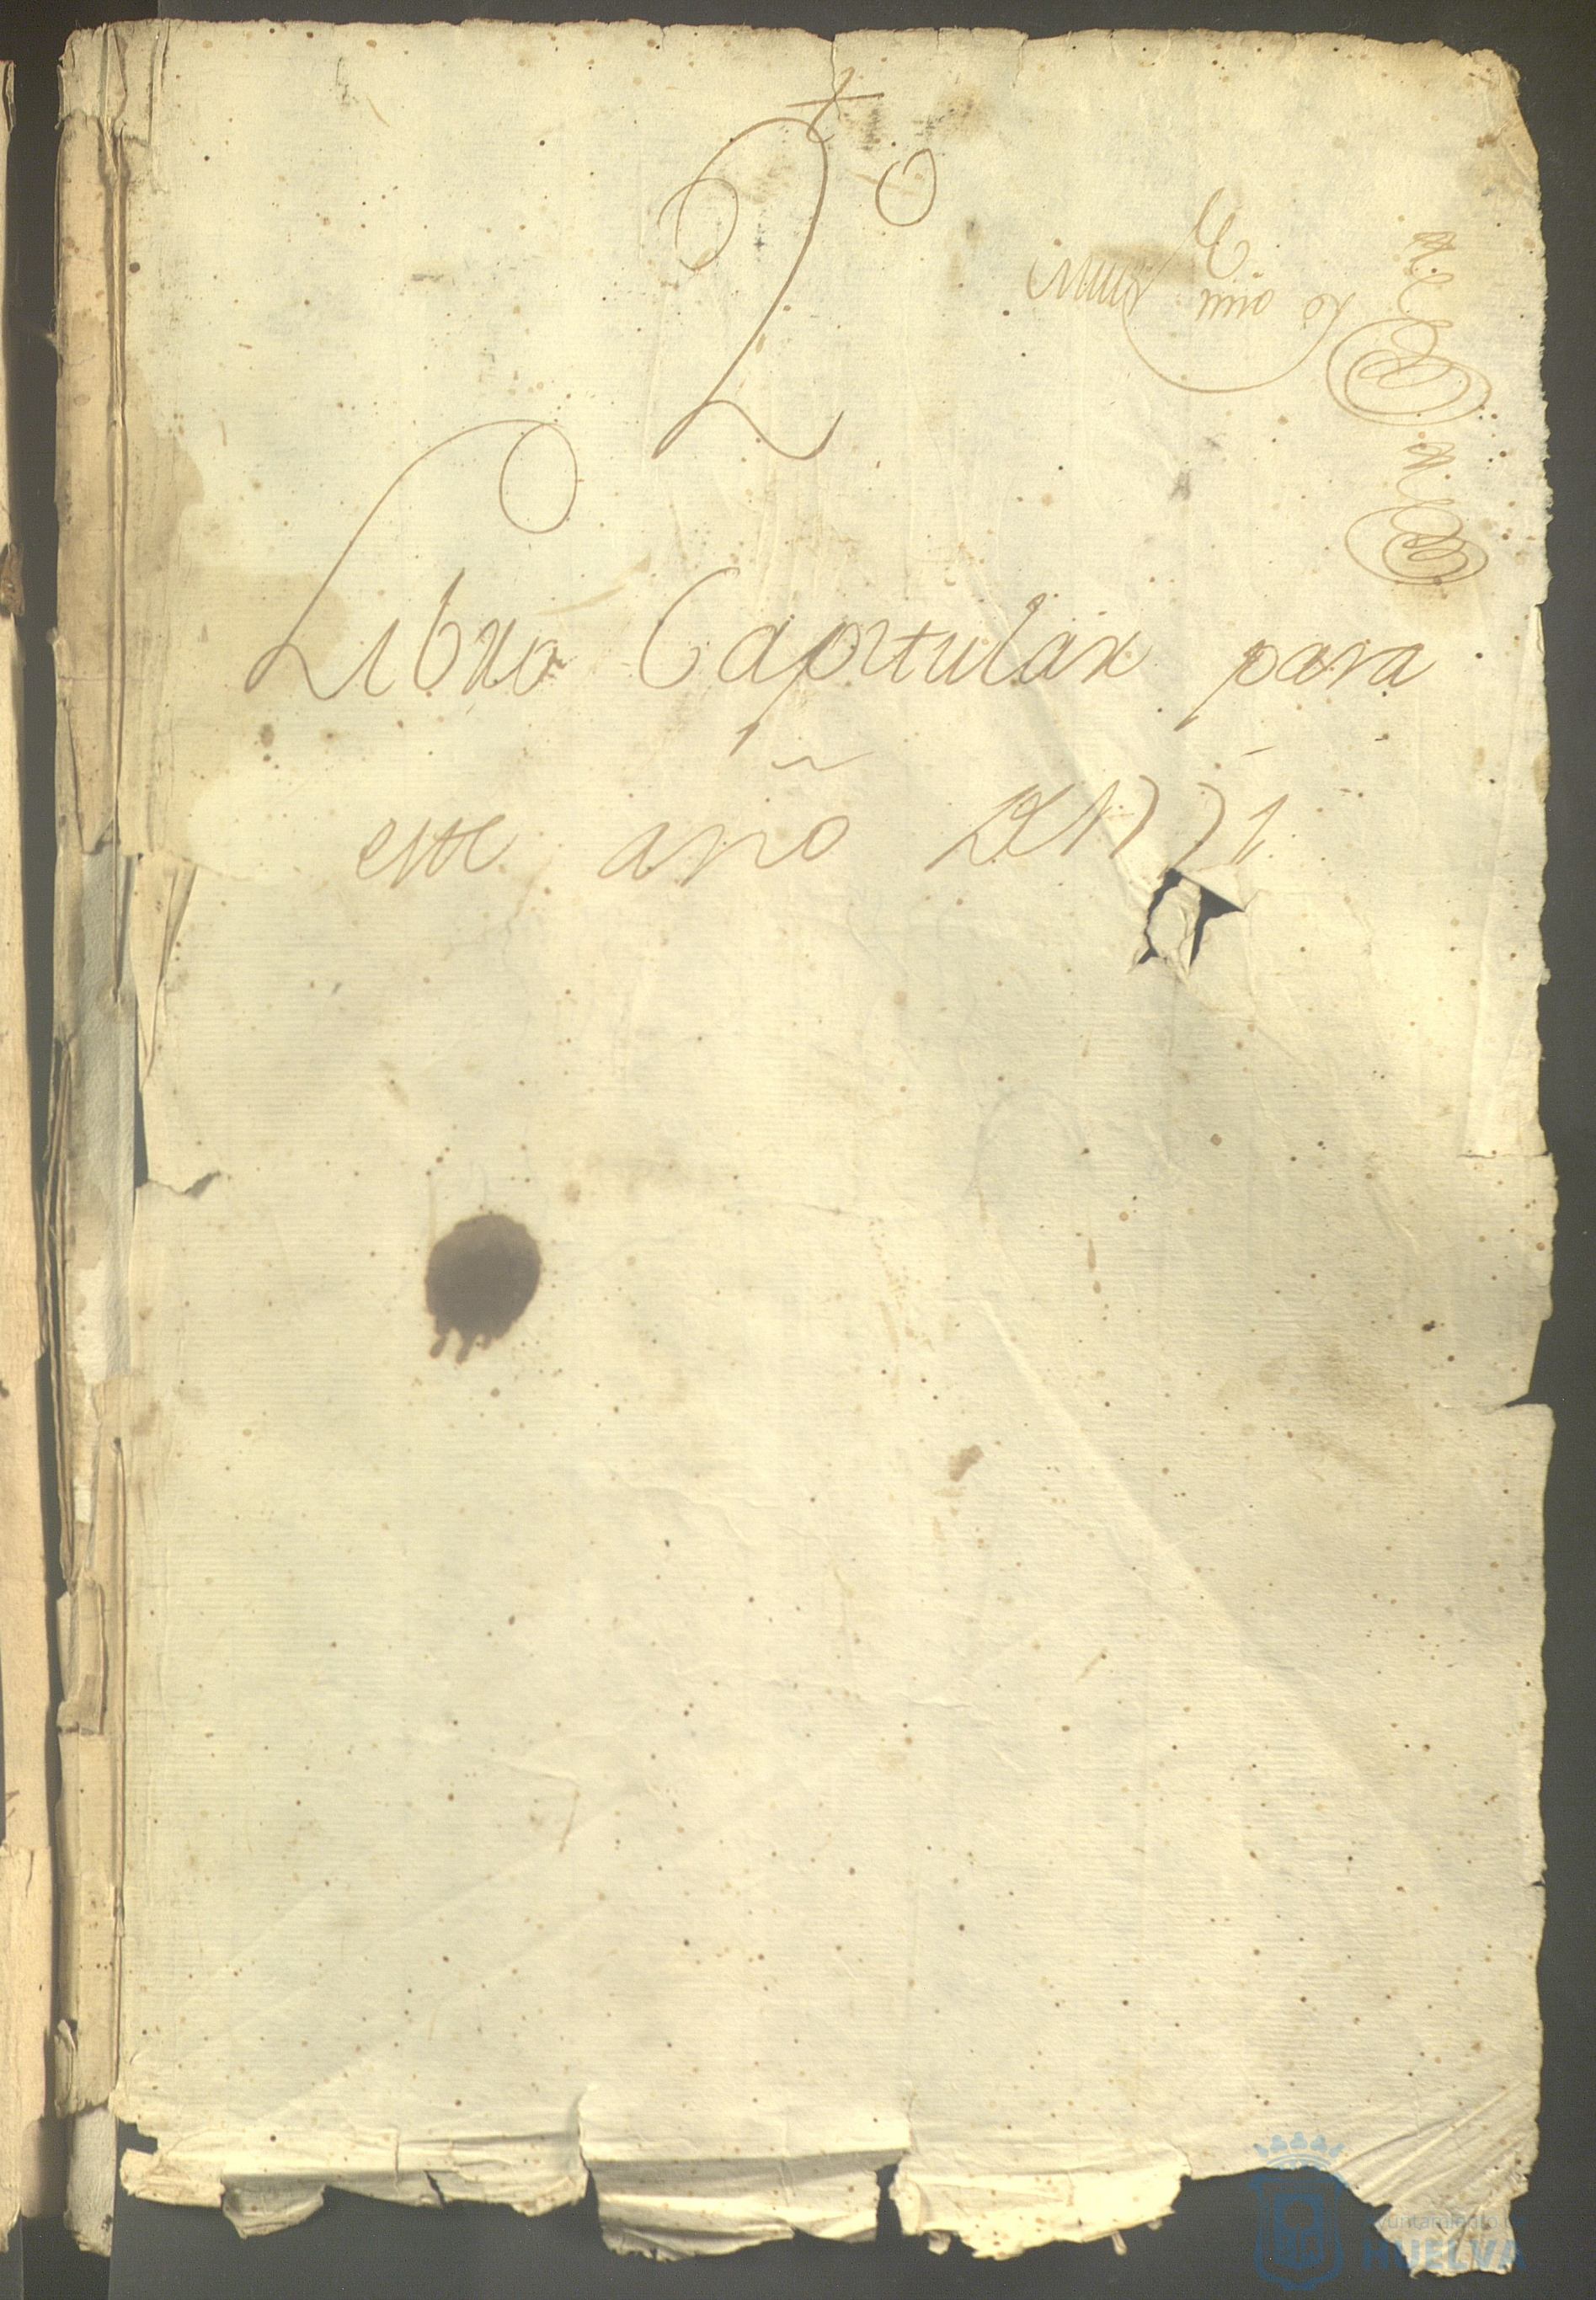 2º
Libro Capitular para
este año de 1771
Muy S.r mio
Ayuntamiento de
HUELVA